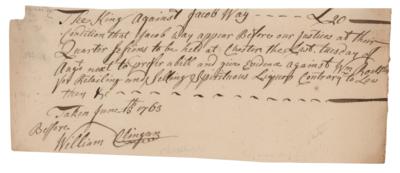 The King Against Jacob Way — £20
Condition that Jacob Way appear Before our Justices at their
Quarter Sessions to be held at Chester the Last Tuesday of
Augt next to prefer a bill and give Evidence against Wm
for Retailing and Selling Spirituous Liquors Contrary to Law
then &c
Taken June 13th 1763
Before
William Clingan